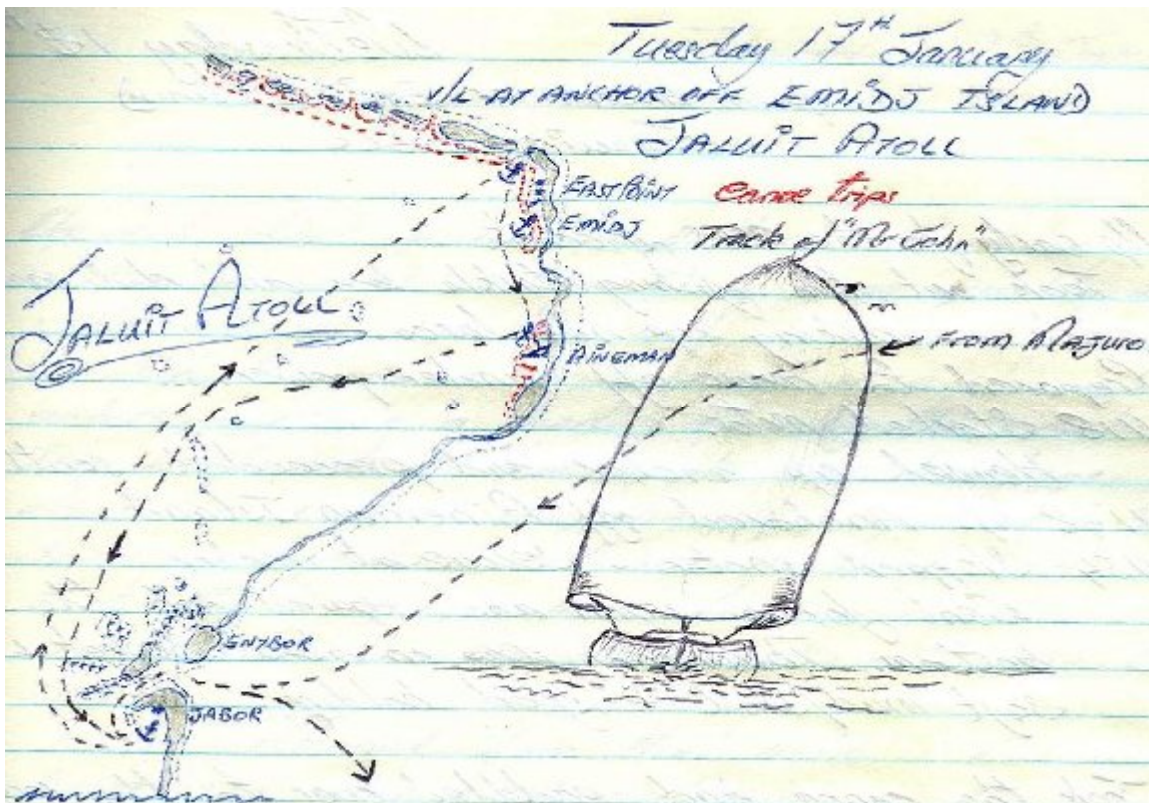 Tuesday 17th January
V/L AT ANCHOR OFF EMIDJ ISLAND
JALUIT ATOLL
EAST POINT
Canoe trips
EMIDJ
Track of "Mr John"
JALUIT ATOLL
AINEMAN
FROM MAJURO
ENYBOR
JABOR